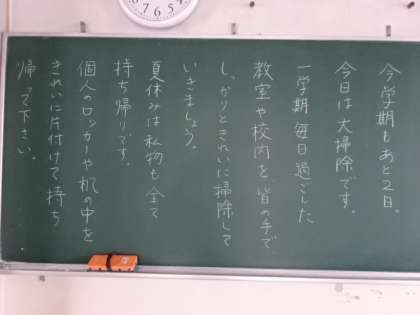 今学期もあと2日。
今日は大掃除です。
一学期毎日過ごした
教室や校内を、皆の手で
しっかりときれいに掃除して
いきましょう。
夏休みは私物も全て
持ち帰りです。
個人のロッカーや机の中を
きれいに片付けて持ち
帰って下さい。